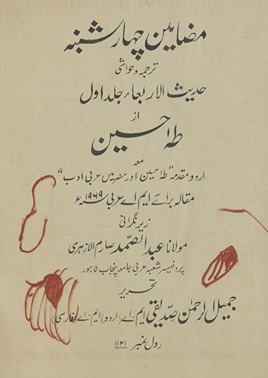 مضامین چہار شنبہ
ترجمہ و حواشی
حدیث الاربعاء جلد اول
از
طہٰ حسین
معہ
اردو مقدمہ "طہٰ حسین اور مصر میں عربی ادب"
مقالہ برائے ایم اے عربی سنہ ۱۹۶۹ء
زیر نگرانی
مولانا عبد الصمد صارم الازہری
پروفیسر شعبہ عربی جامعہ پنجاب لاہور
تحریر
جمیل الرحمٰن صدیقی ایم اے (اردو) ایم اے فارسی
رول نمبر ۱۱۲۱